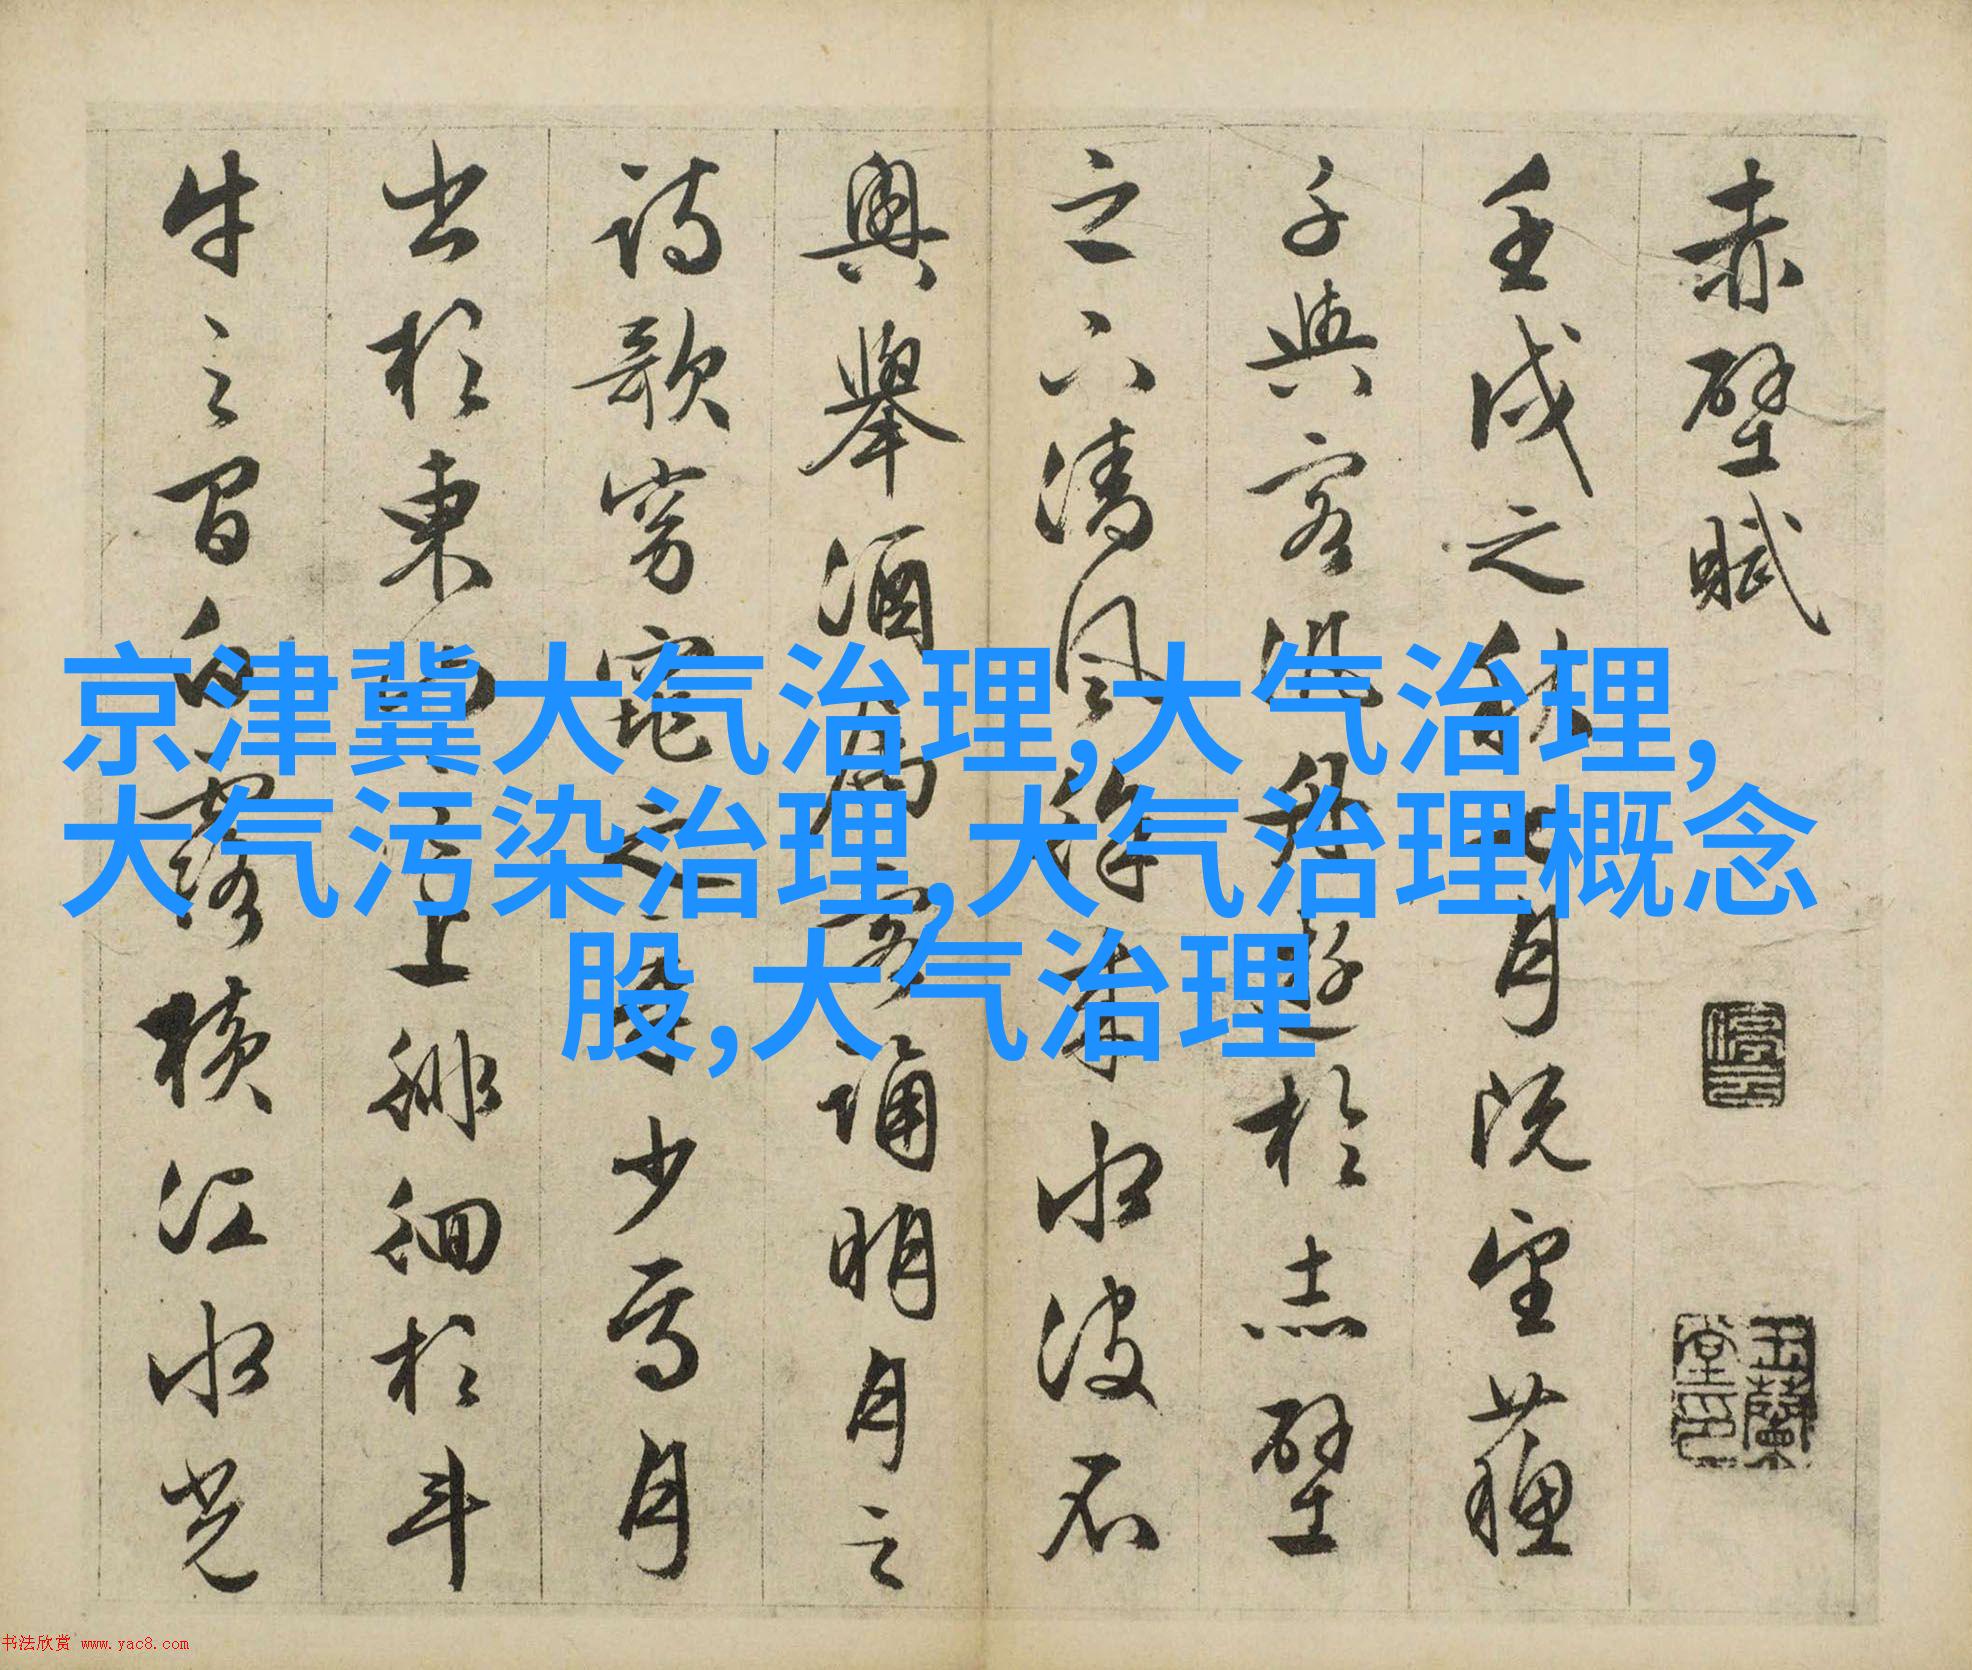 赤壁賦
壬戌之秋七月既望蘓
子與客泛舟遊於赤壁
之下清風徐来水波不
興舉酒屬客誦明月之
詩歌窈窕之章少焉月
出於東山之上徘徊於斗
牛之間白露横江水光
停雲
玉蘭堂印
京津冀大气治理,大气治理,
大气污染治理,大气治理概念
股,大气治理
书法欣赏 www.yac8.com